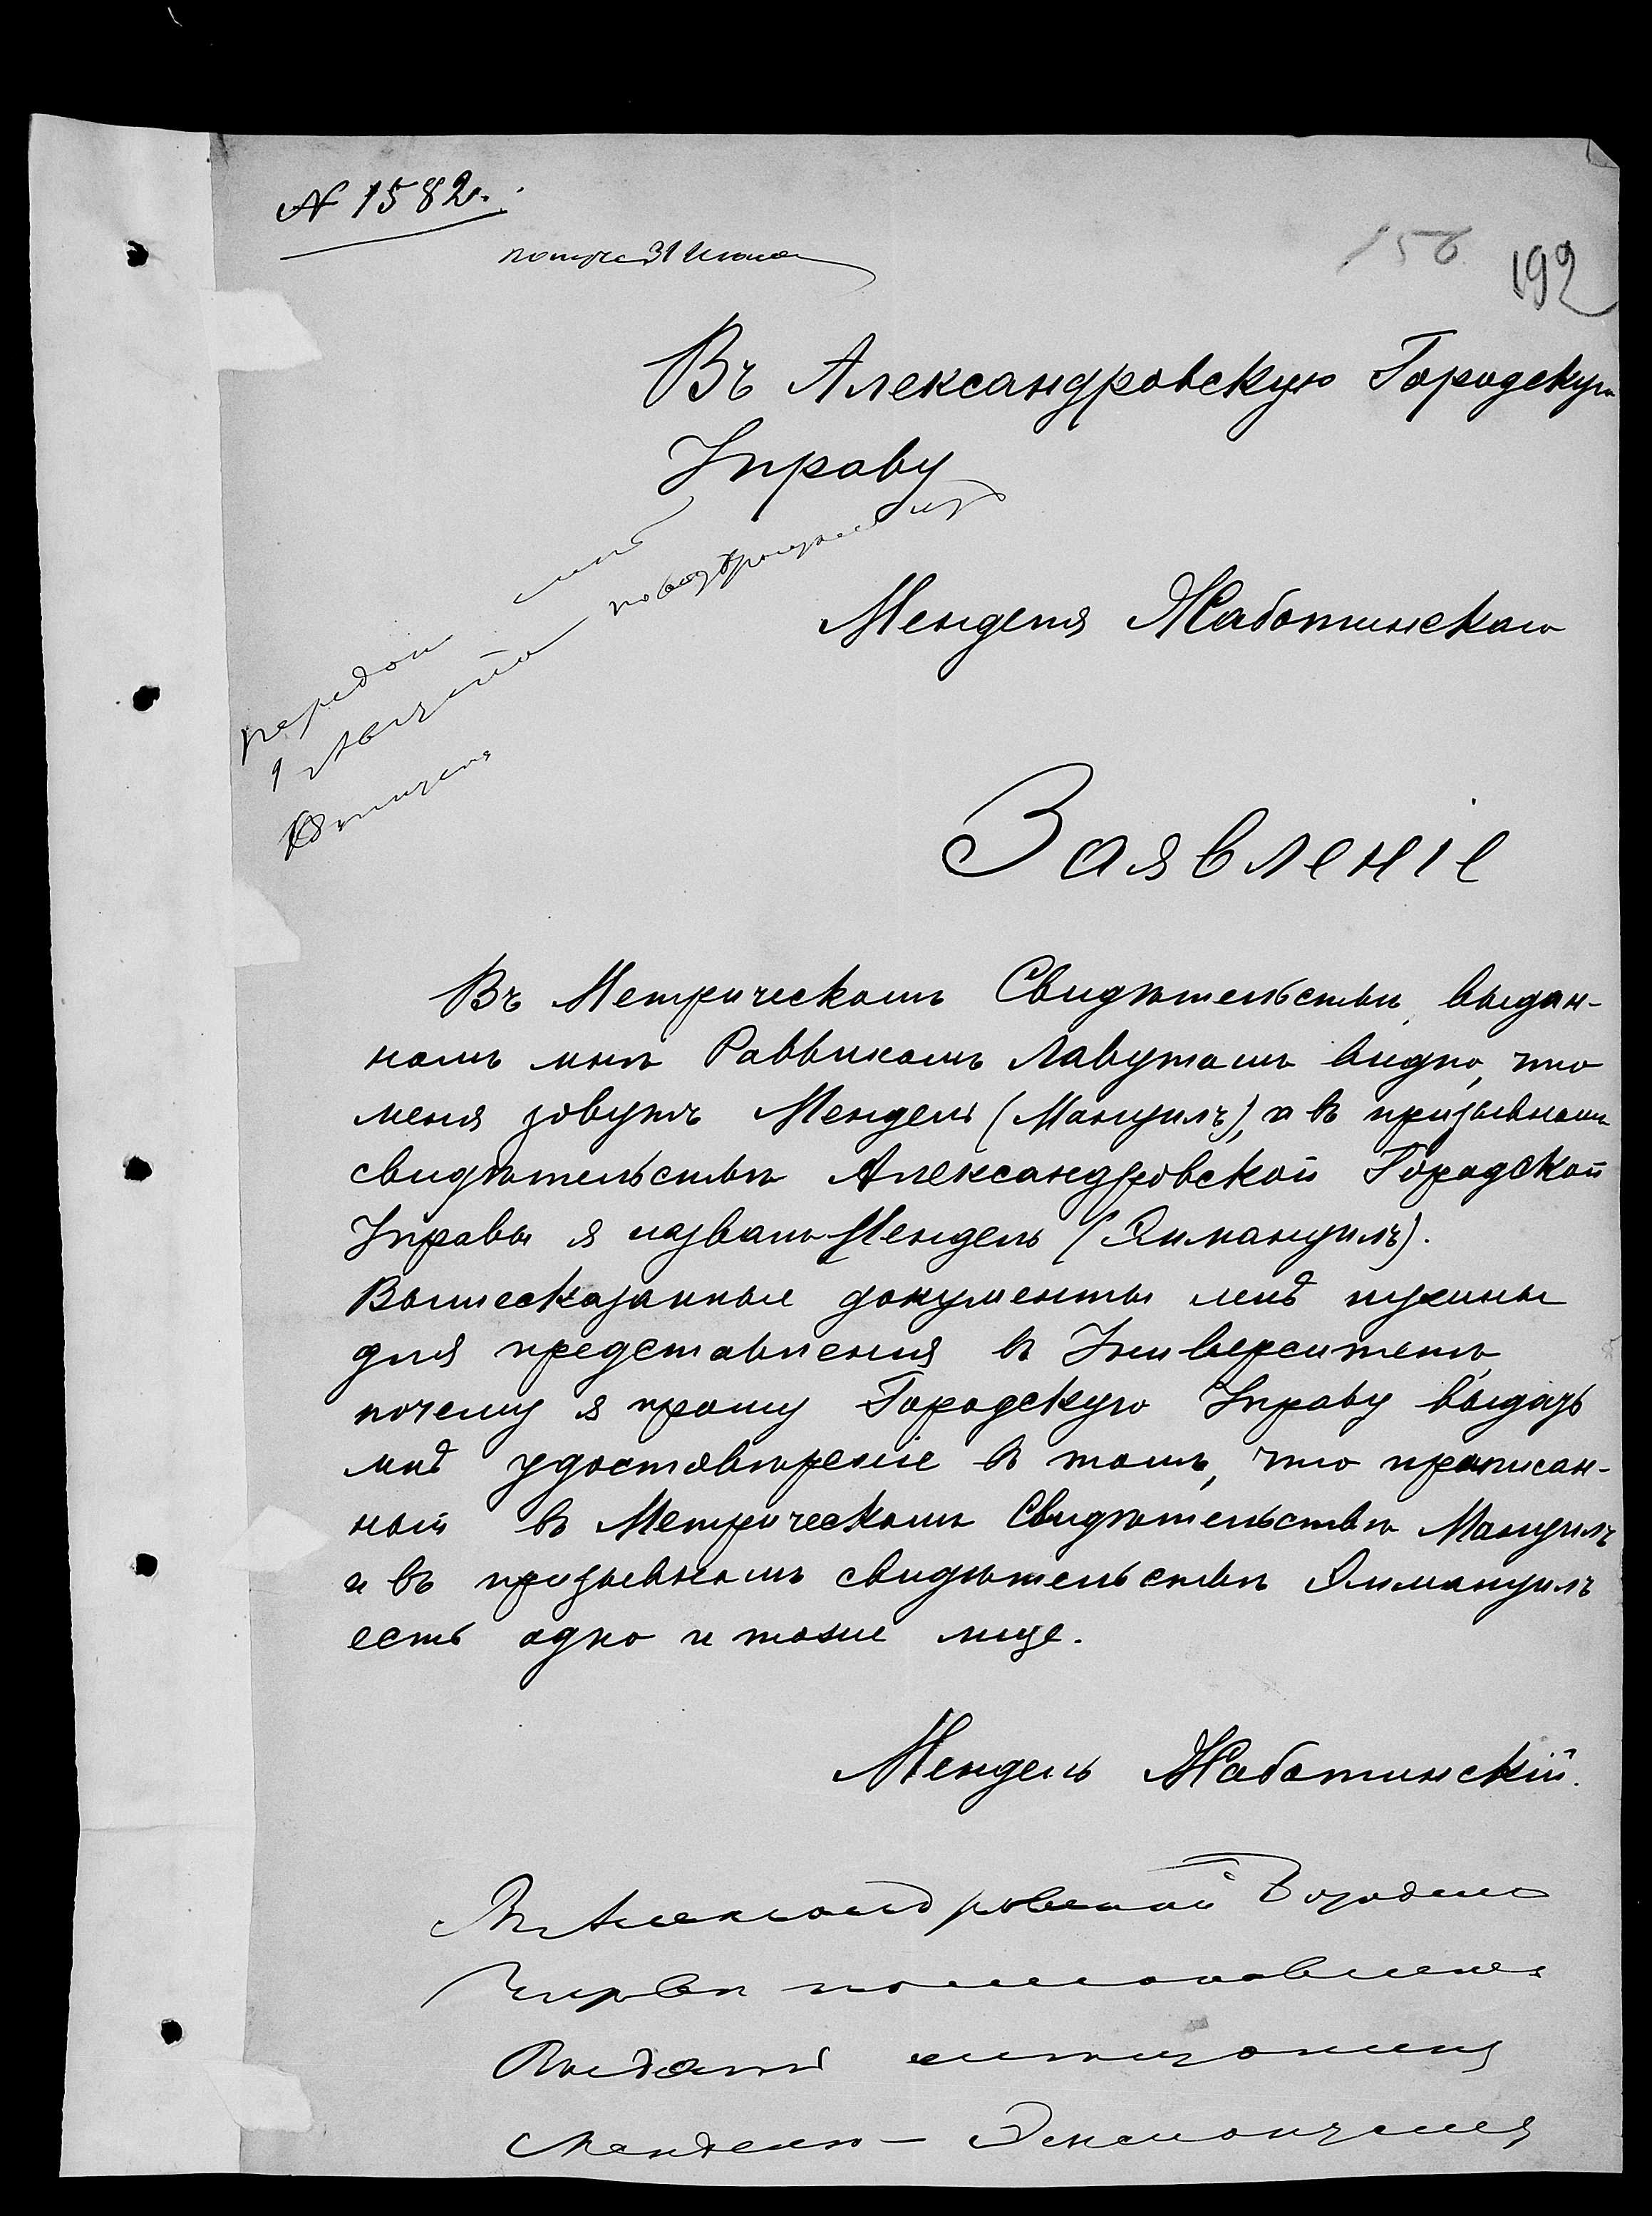 № 1582.
31 Июля
156 192
Въ Александровскую Городскую
Управу
Менделя Жаботинскаго
передан
1 Августа
Заявленіе
Въ Метрическомъ Свидѣтельствѣ, выдан-
номъ мнѣ Раввиномъ Лавутомъ видно, что
меня зовутъ Мендель (Мануилъ), а въ призывномъ
свидѣтельствѣ Александровской Городской
Управы я названъ Мендель (Эммануилъ).
Вышесказанные документы мнѣ нужны
для представленія въ Университетъ,
почему я прошу Городскую Управу выдать
мнѣ удостовѣреніе въ томъ, что прописан-
ный въ Метрическомъ Свидѣтельствѣ Мануилъ
и въ призывномъ свидѣтельствѣ Эммануилъ
есть одно и тоже лице.
Мендель Жаботинскій.
Въ Александровской Городской
Управѣ
Выдать
Менделю —